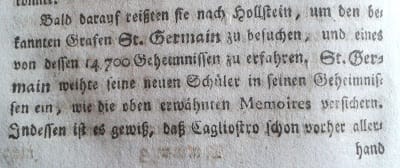 Bald darauf reißten sie nach Hollstein, um den be
kannten Grafen St. Germain zu besuchen, und eines
von dessen 14,700 Geheimnissen zu erfahren. St. Ger-
main weihte seine neuen Schüler in seinen Geheimnis-
sen ein, wie die oben erwähnten Memoires versichern.
Indessen ist es gewiß, daß Cagliostro schon vorher aller-
hand